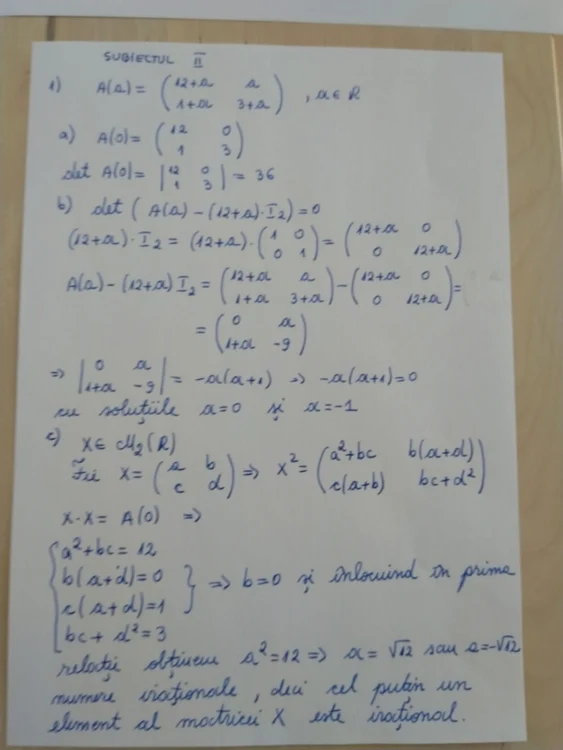 SUBIECTUL II
1) A(a) = (12+a a
1+a 3+a) , a ∈ R
a) A(0) = (12 0
1 3)
det A(0) = |12 0
1 3| = 36
b) det (A(a) - (12+a)·I₂) = 0
(12+a)·I₂ = (12+a)·(1 0
0 1) = (12+a 0
0 12+a)
A(a) - (12+a) I₂ = (12+a a
1+a 3+a) - (12+a 0
0 12+a) =
= (0 a
1+a -9)
=> |0 a
1+a -9| = -a(a+1) => -a(a+1) = 0
cu soluțiile a=0 și a=-1
c) X ∈ M₂(R)
Fie X = (a b
c d) => X² = (a²+bc b(a+d)
c(a+b) bc+d²)
X·X = A(0) =>
{a²+bc = 12
b(a+d) = 0
c(a+d) = 1
bc + d² = 3} => b=0 și înlocuind în prima
relație obținem a² = 12 => a = √12 sau a = -√12
numere iraționale, deci cel puțin un
element al matricei X este irațional.